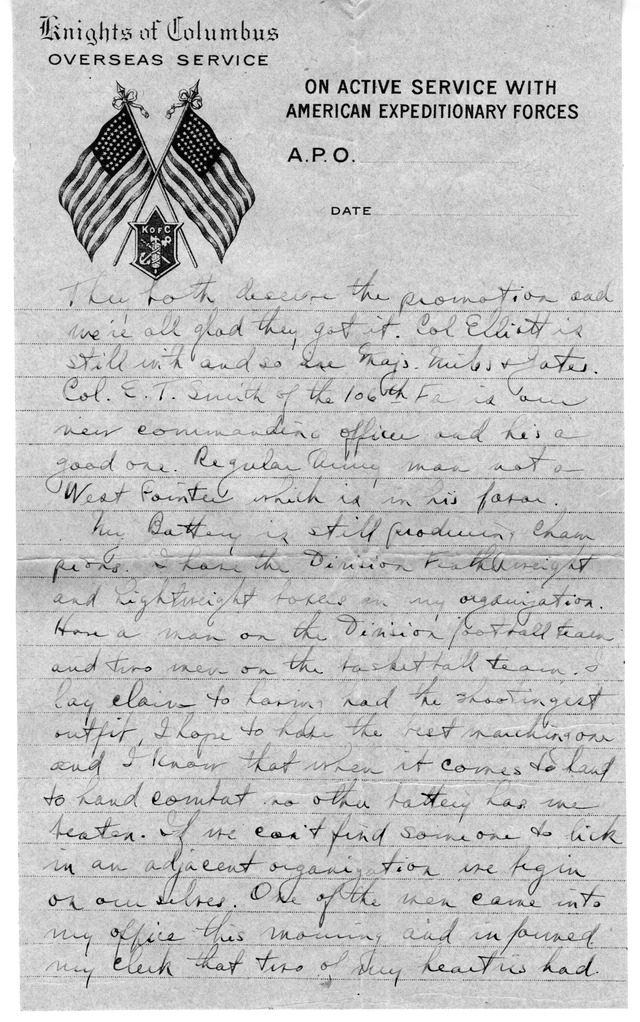 Knights of Columbus
OVERSEAS SERVICE
ON ACTIVE SERVICE WITH
AMERICAN EXPEDITIONARY FORCES
A.P.O.
DATE
K OF C
They both deserve the promotion and
we're all glad they got it. Col Elliott is
still with and so are Majs. Miles & Gates.
Col. E. T. Smith of the 106th Fa is our
new commanding officer and he's a
good one. Regular Army man not a
West Pointer which is in his favor.
My Battery is still producing cham
pions. I have the Division Featherweight
and Lightweight boxers in my organization.
Have a man on the Division football team
and two men on the basketball team. I
lay claim to having had the shootingest
outfit, I hope to have the best marching one
and I know that when it comes to hand
to hand combat no other battery has me
beaten. If we can't find someone to lick
in an adjacent organization we begin
on ourselves. One of the men came into
my office this morning and informed
my clerk that two of my hearties had